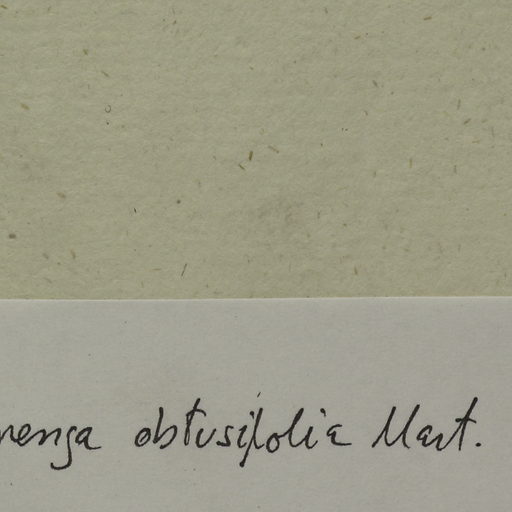 nenga obtusifolia Mart.